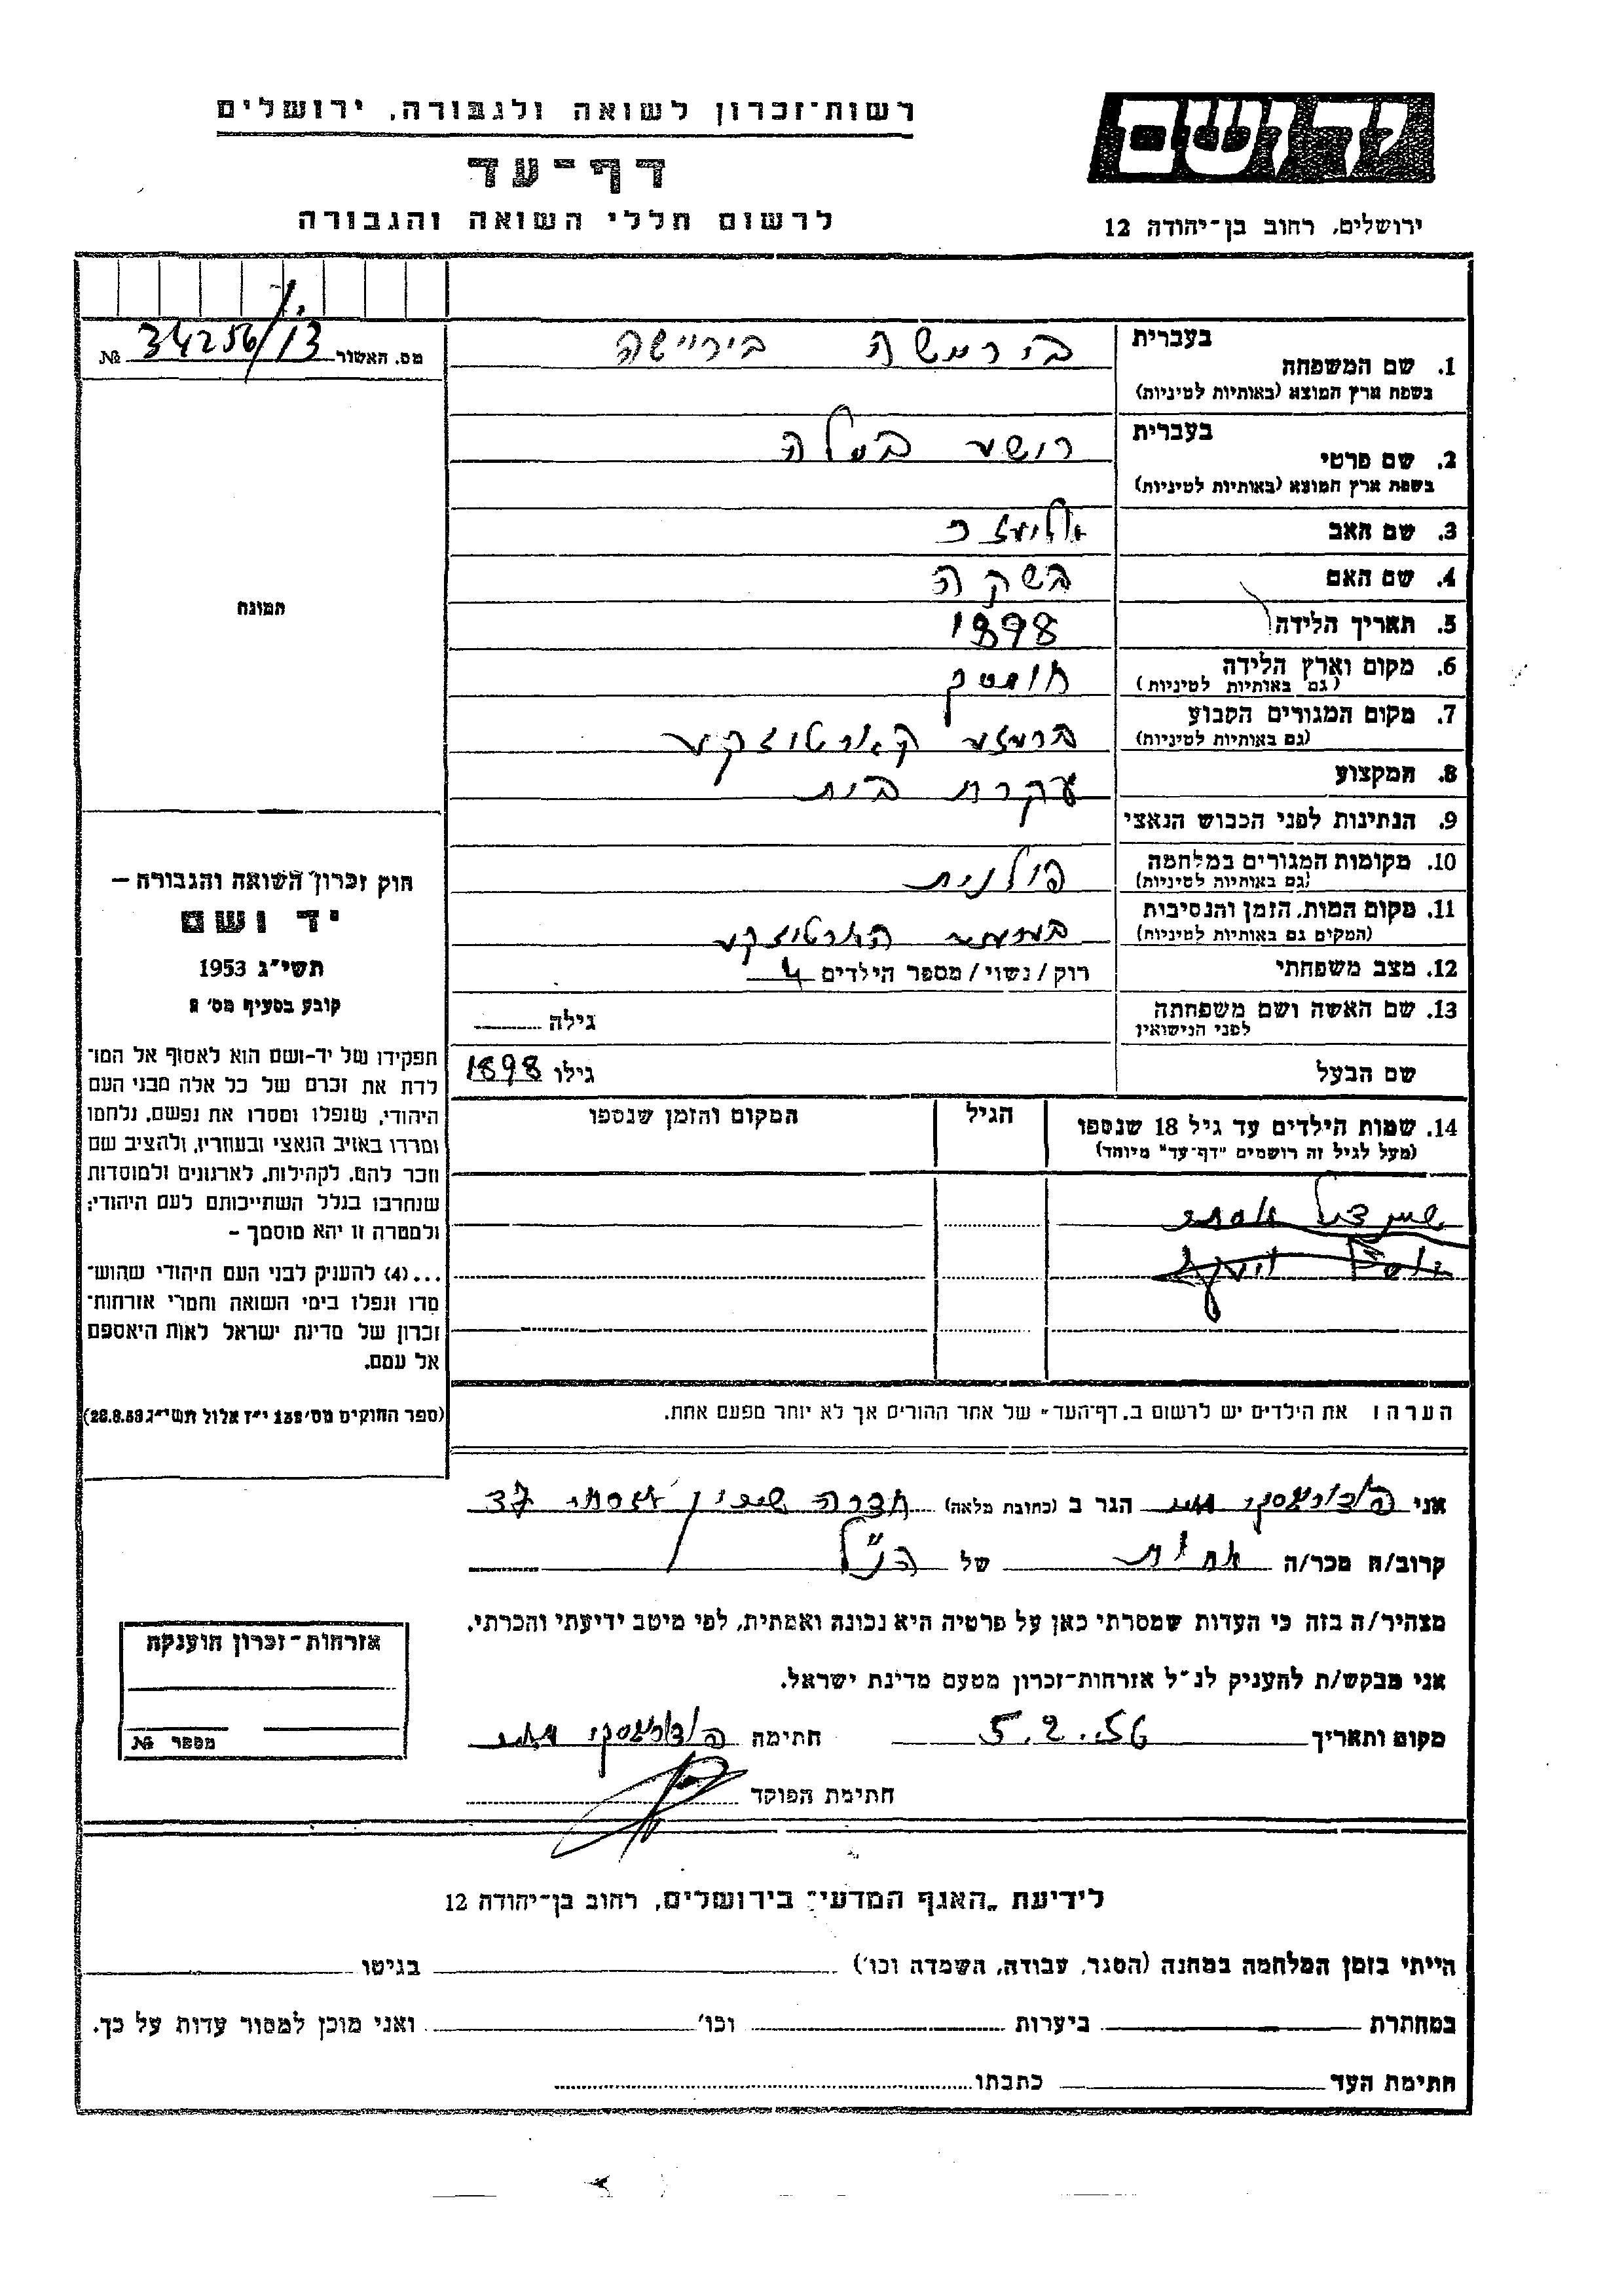 רשות־זכרון לשואה ולגבורה, ירושלים
דף־עד
לרשום חללי השואה והגבורה
ידושם
ירושלים, רחוב בן־יהודה 12
מס. האשור 34256/13 №
תמונה
חוק זכרון השואה והגבורה –
יד ושם
תשי״ג 1953
קובע בסעיף מס׳ 2
תפקידו של יד-ושם הוא לאסוף אל המו־
לדת את זכרם של כל אלה מבני העם
היהודי, שנפלו ומסרו את נפשם, נלחמו
ומרדו באויב הנאצי ובעוזריו, ולהציב שם
וזכר להם, לקהילות, לארגונים ולמוסדות
שנחרבו בגלל השתייכותם לעם היהודי;
ולמטרה זו יהא מוסמך –
...(4) להעניק לבני העם היהודי שהוש־
מדו ונפלו בימי השואה והמרי אזרחות־
זכרון של מדינת ישראל לאות היאספם
אל עמם.
(ספר החוקים מס׳ 132 י״ז אלול תשי״ג 28.8.53)
בעברית
1. שם המשפחה
בשפת ארץ המוצא (באותיות לטיניות)
בעברית
2. שם פרטי
בשפת ארץ המוצא (באותיות לטיניות)
3. שם האב
4. שם האם
5. תאריך הלידה 1898
6. מקום וארץ הלידה
(גם באותיות לטיניות)
7. מקום המגורים הקבוע
(גם באותיות לטיניות)
8. המקצוע עקרת בית
9. הנתינות לפני הכבוש הנאצי
10. מקומות המגורים במלחמה פולנית
(גם באותיות לטיניות)
11. מקום המות, הזמן והנסיבות
(המקום גם באותיות לטיניות)
12. מצב משפחתי רוק/נשוי/מספר הילדים 4
13. שם האשה ושם משפחתה גילה
לפני הנישואין
שם הבעל גילו 1898
14. שמות הילדים עד גיל 18 שנספו הגיל המקום והזמן שנספו
(מעל לגיל זה רושמים ״דף־עד״ מיוחד)
הערה: את הילדים יש לרשום ב״דף־העד״ של אחד ההורים אך לא יותר מפעם אחת.
אני הגר ב (כתובת מלאה) חדרה
קרוב/ה מכר/ה אחות של הנ״ל
מצהיר/ה בזה כי העדות שמסרתי כאן על פרטיה היא נכונה ואמתית, לפי מיטב ידיעתי והכרתי.
אני מבקש/ת להעניק לנ״ל אזרחות־זכרון מטעם מדינת ישראל.
מקום ותאריך 5.2.56 חתימה
חתימת הפוקד
אזרחות־זכרון הוענקה
מספר №
לידיעת ״האגף המדעי״ בירושלים, רחוב בן־יהודה 12
הייתי בזמן המלחמה במחנה (הסגר, עבודה, השמדה וכו׳) בגיטו
במחתרת ביערות וכו׳ ואני מוכן למסור עדות על כך.
חתימת העד כתבתו